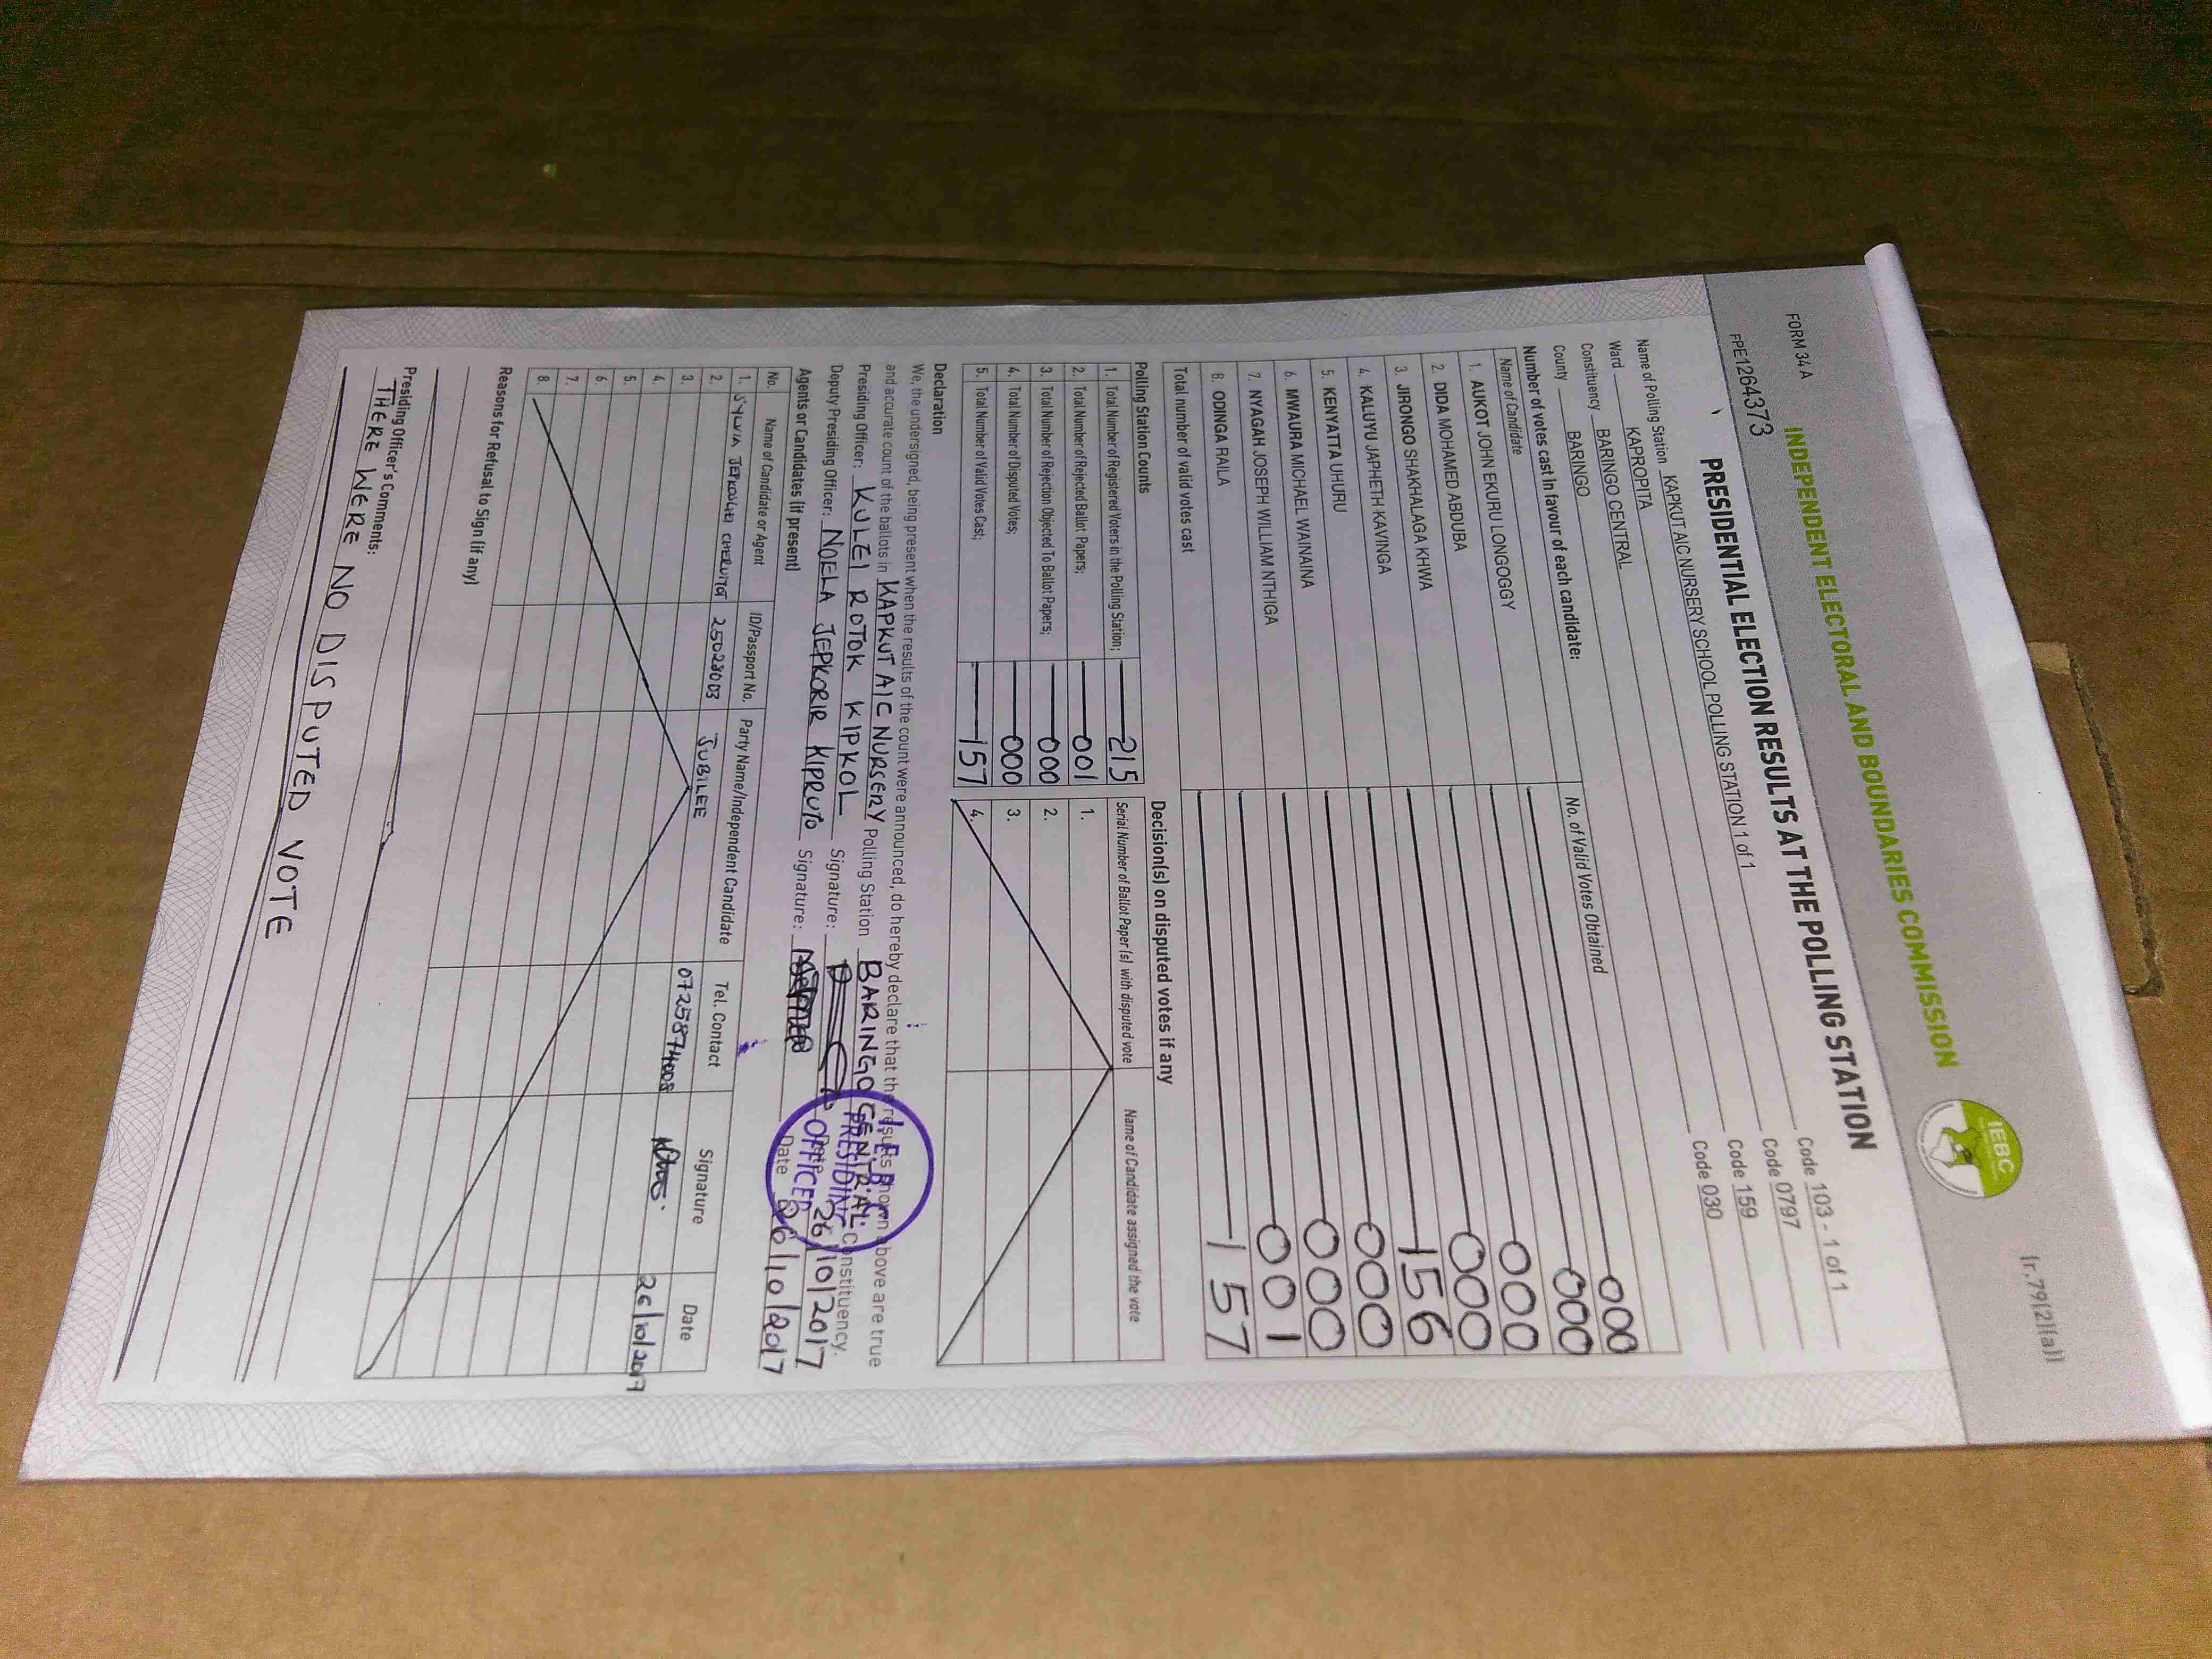 FORM 34 A
[r.79(2)(a)]
INDEPENDENT ELECTORAL AND BOUNDARIES COMMISSION
IEBC
FPE1264373
PRESIDENTIAL ELECTION RESULTS AT THE POLLING STATION
Name of Polling Station KAPKUT AIC NURSERY SCHOOL POLLING STATION 1 of 1 Code 103 - 1 of 1
Ward KAPROPITA Code 0797
Constituency BARINGO CENTRAL Code 159
County BARINGO Code 030
Number of votes cast in favour of each candidate:
Name of Candidate No. of Valid Votes Obtained
1. AUKOT JOHN EKURU LONGOGGY 000
2. DIDA MOHAMED ABDUBA 000
3. JIRONGO SHAKHALAGA KHWA 000
4. KALUYU JAPHETH KAVINGA 000
5. KENYATTA UHURU 156
6. MWAURA MICHAEL WAINAINA 000
7. NYAGAH JOSEPH WILLIAM NTHIGA 000
8. ODINGA RAILA 001
Total number of valid votes cast 157
Polling Station Counts
1. Total Number of Registered Voters in the Polling Station; 215
2. Total Number of Rejected Ballot Papers; 001
3. Total Number of Rejection Objected To Ballot Papers; 000
4. Total Number of Disputed Votes; 000
5. Total Number of Valid Votes Cast; 157
Decision(s) on disputed votes if any
Serial Number of Ballot Paper (s) with disputed vote Name of Candidate assigned the vote
1.
2.
3.
4.
Declaration
We, the undersigned, being present when the results of the count were announced, do hereby declare that the results shown above are true
and accurate count of the ballots in KAPKUT AIC NURSERY Polling Station BARINGO CENTRAL Constituency.
Presiding Officer: KULEI ROTOK KIPKOL Signature: Date 26/10/2017
Deputy Presiding Officer: NOELA JEPKORIR KIPRUTO Signature: Date 26/10/2017
I.E.B.C.
PRESIDING
OFFICER
Agents or Candidates (if present)
No. Name of Candidate or Agent ID/Passport No. Party Name/Independent Candidate Tel. Contact Signature Date
1. SYLVIA CHERUTOT 25028003 JUBILEE 0725874008 26/10/2017
2.
3.
4.
5.
6.
7.
8.
Reasons for Refusal to Sign (if any)
Presiding Officer's Comments:
THERE WERE NO DISPUTED VOTE